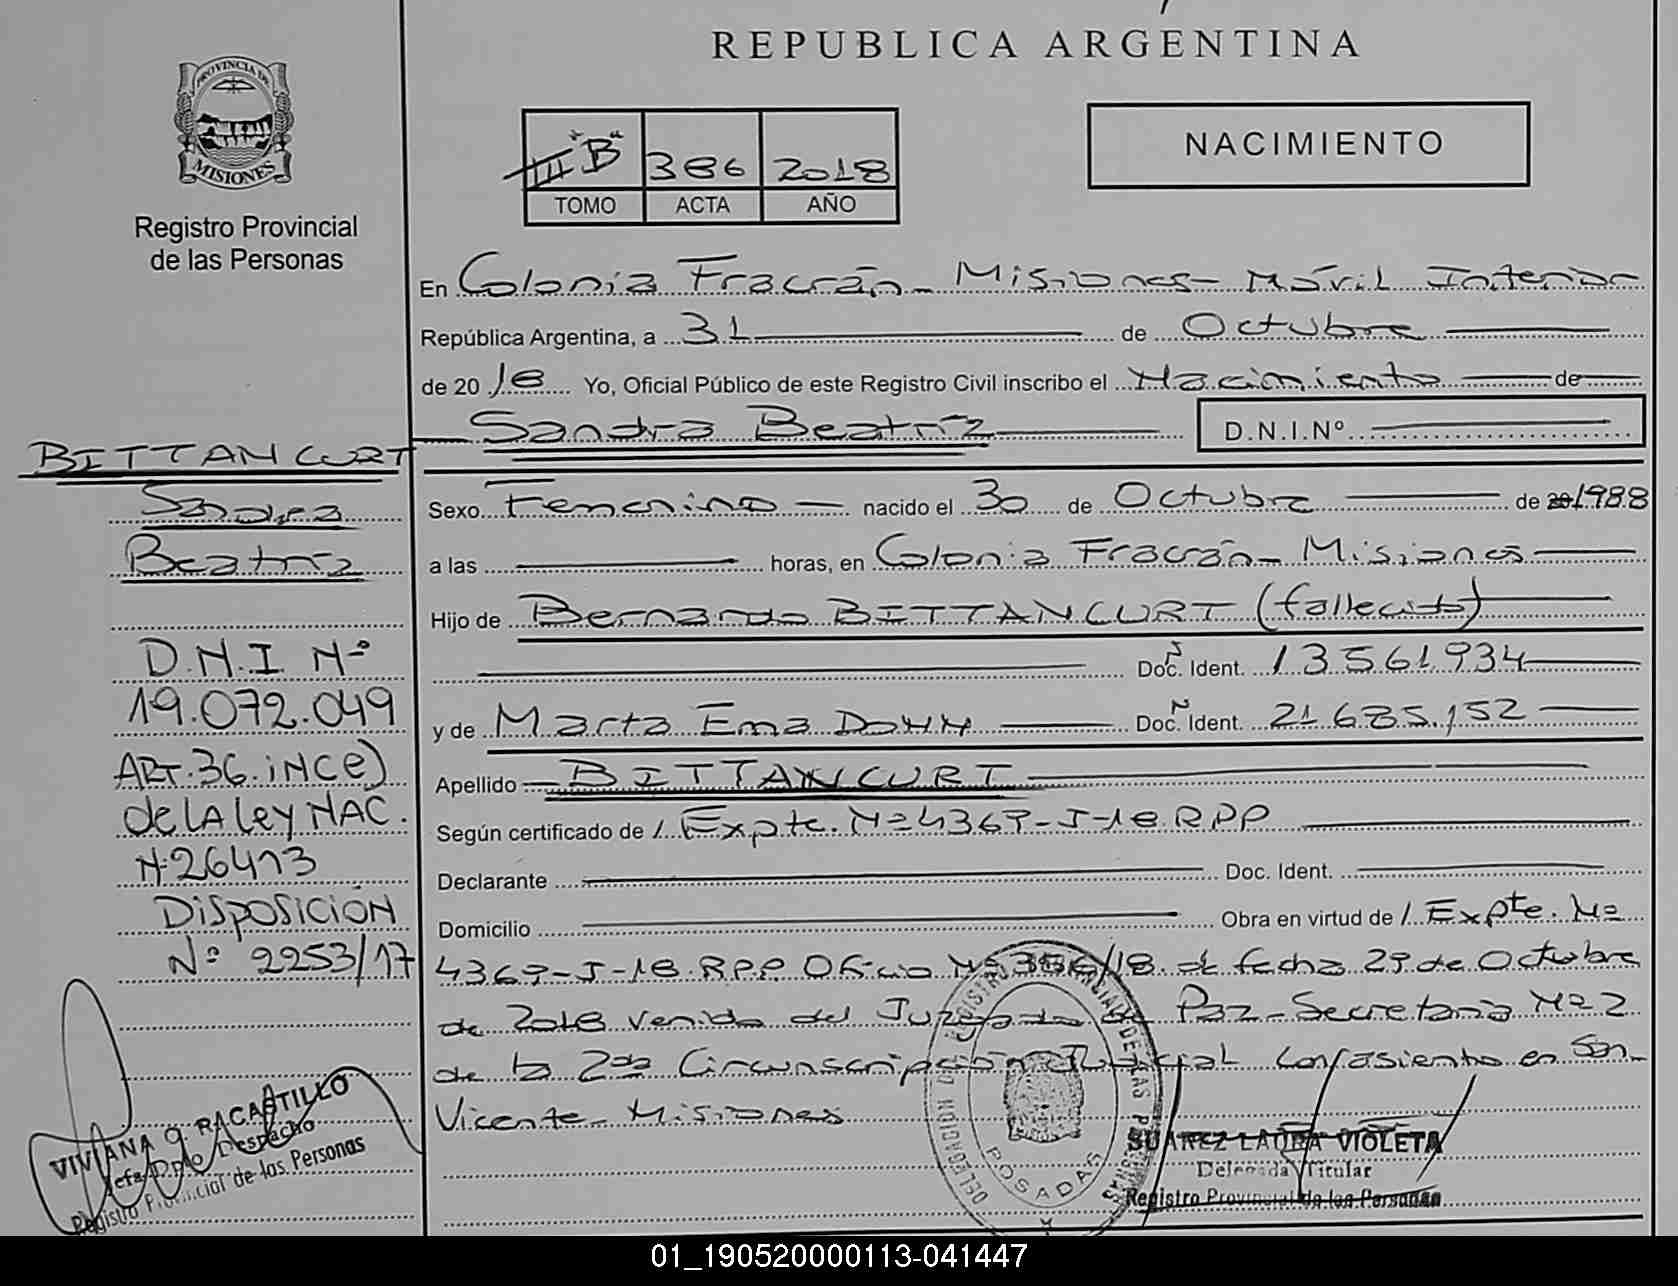 REPUBLICA ARGENTINA
PROVINCIA DE
MISIONES
Registro Provincial
de las Personas
III "B" 386 2018
TOMO ACTA AÑO
NACIMIENTO
En Colonia Fracrán - Misiones - Móvil Interior
República Argentina, a 31 de Octubre
de 2018 Yo, Oficial Público de este Registro Civil inscribo el Nacimiento de
Sandra Beatríz D.N.I.Nº
BITTANCURT
Sandra
Beatríz
D.N.I. Nº
19.072.049
ART.36.iNCe)
de LA Ley NAC.
Nº26413
DISPOSICIÓN
Nº 2253/17
Sexo Femenino nacido el 30 de Octubre de 20 1988
a las horas, en Colonia Fracrán - Misiones
Hijo de Bernardo BITTANCURT (fallecido)
Doc. Ident. 13561934
y de Marta Ema DOHH Doc. Ident. 21.685.152
Apellido BITTANCURT
Según certificado de /. Expte. Nº 4369-J-18.RPP
Declarante Doc. Ident.
Domicilio Obra en virtud de /. Expte. Nº
4369-J-18.RPP Oficio Nº 386/18. de fecha 29 de Octubre
de 2018 venido del Juzgado de Paz - Secretaria Nº 2
de la 2da Circunscripción Judicial con asiento en San
Vicente - Misiones
VIVIANA G. RACASTILLO
Jefa Dpto Despacho
Registro Provincial de las Personas
POSADAS
SUAREZ LAURA VIOLETA
Delegada Titular
Registro Provincial de las Personas
01_190520000113-041447